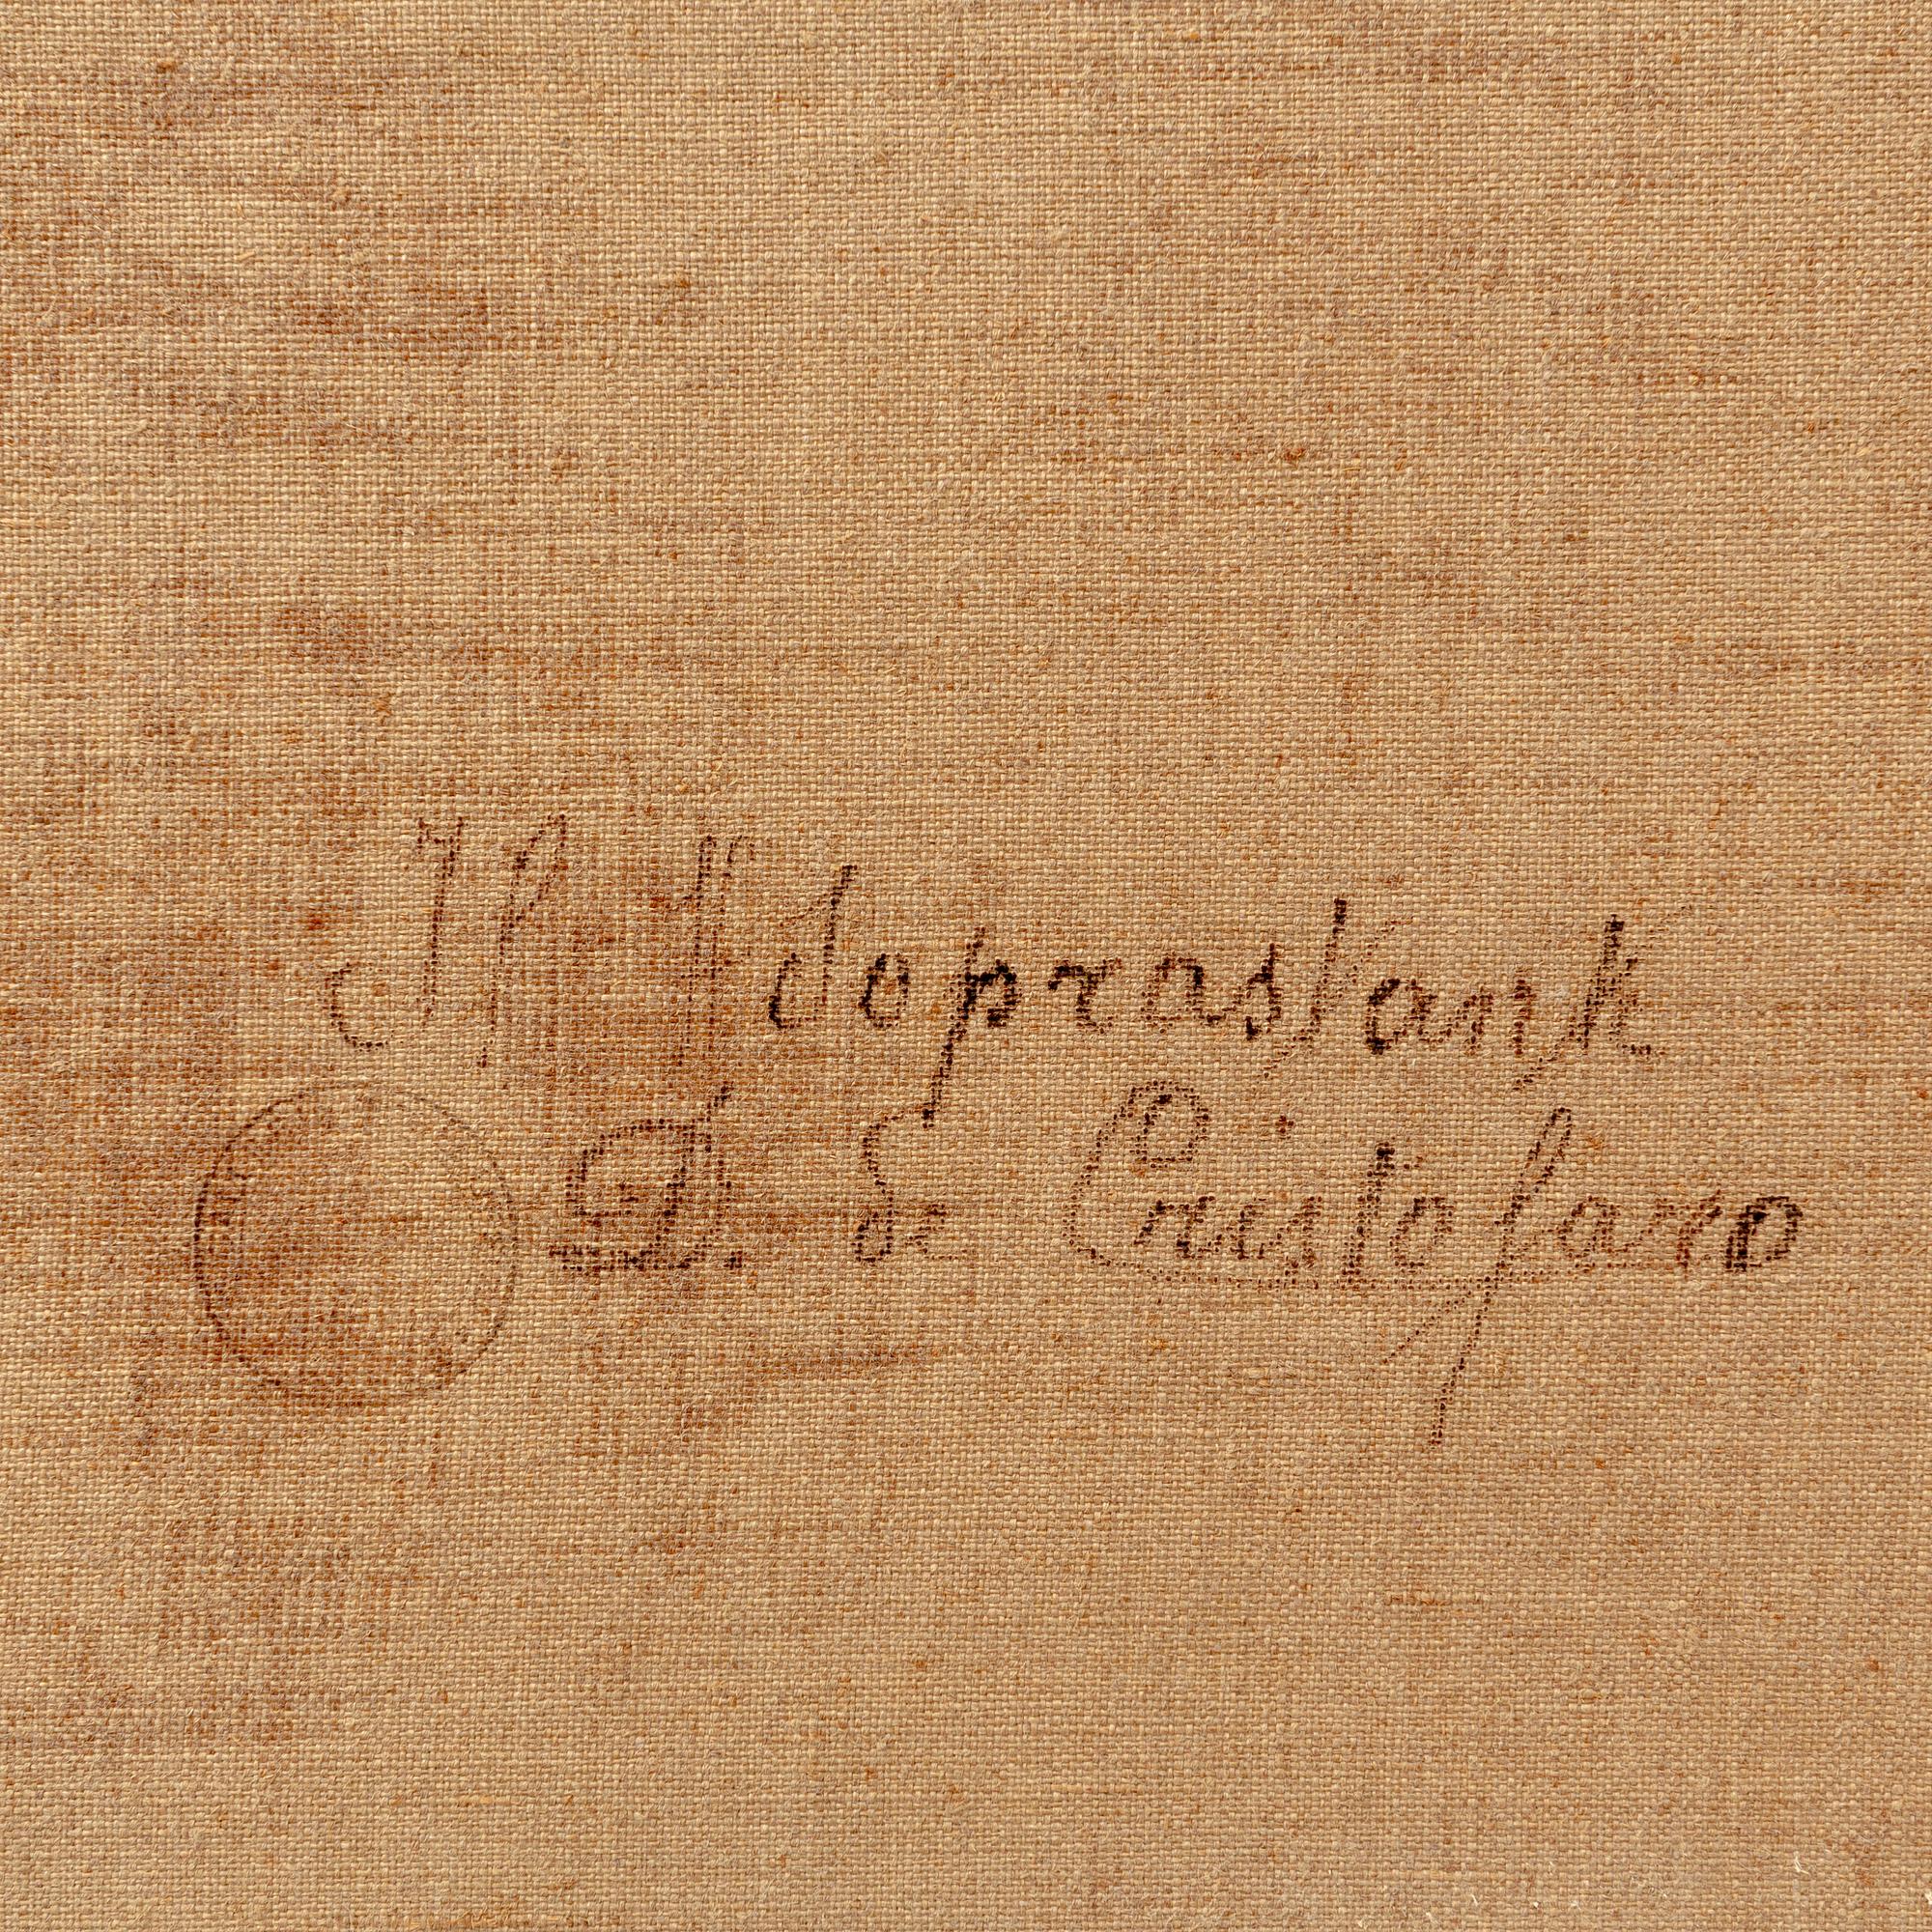 Il Soprastante
D. de Cristofaro